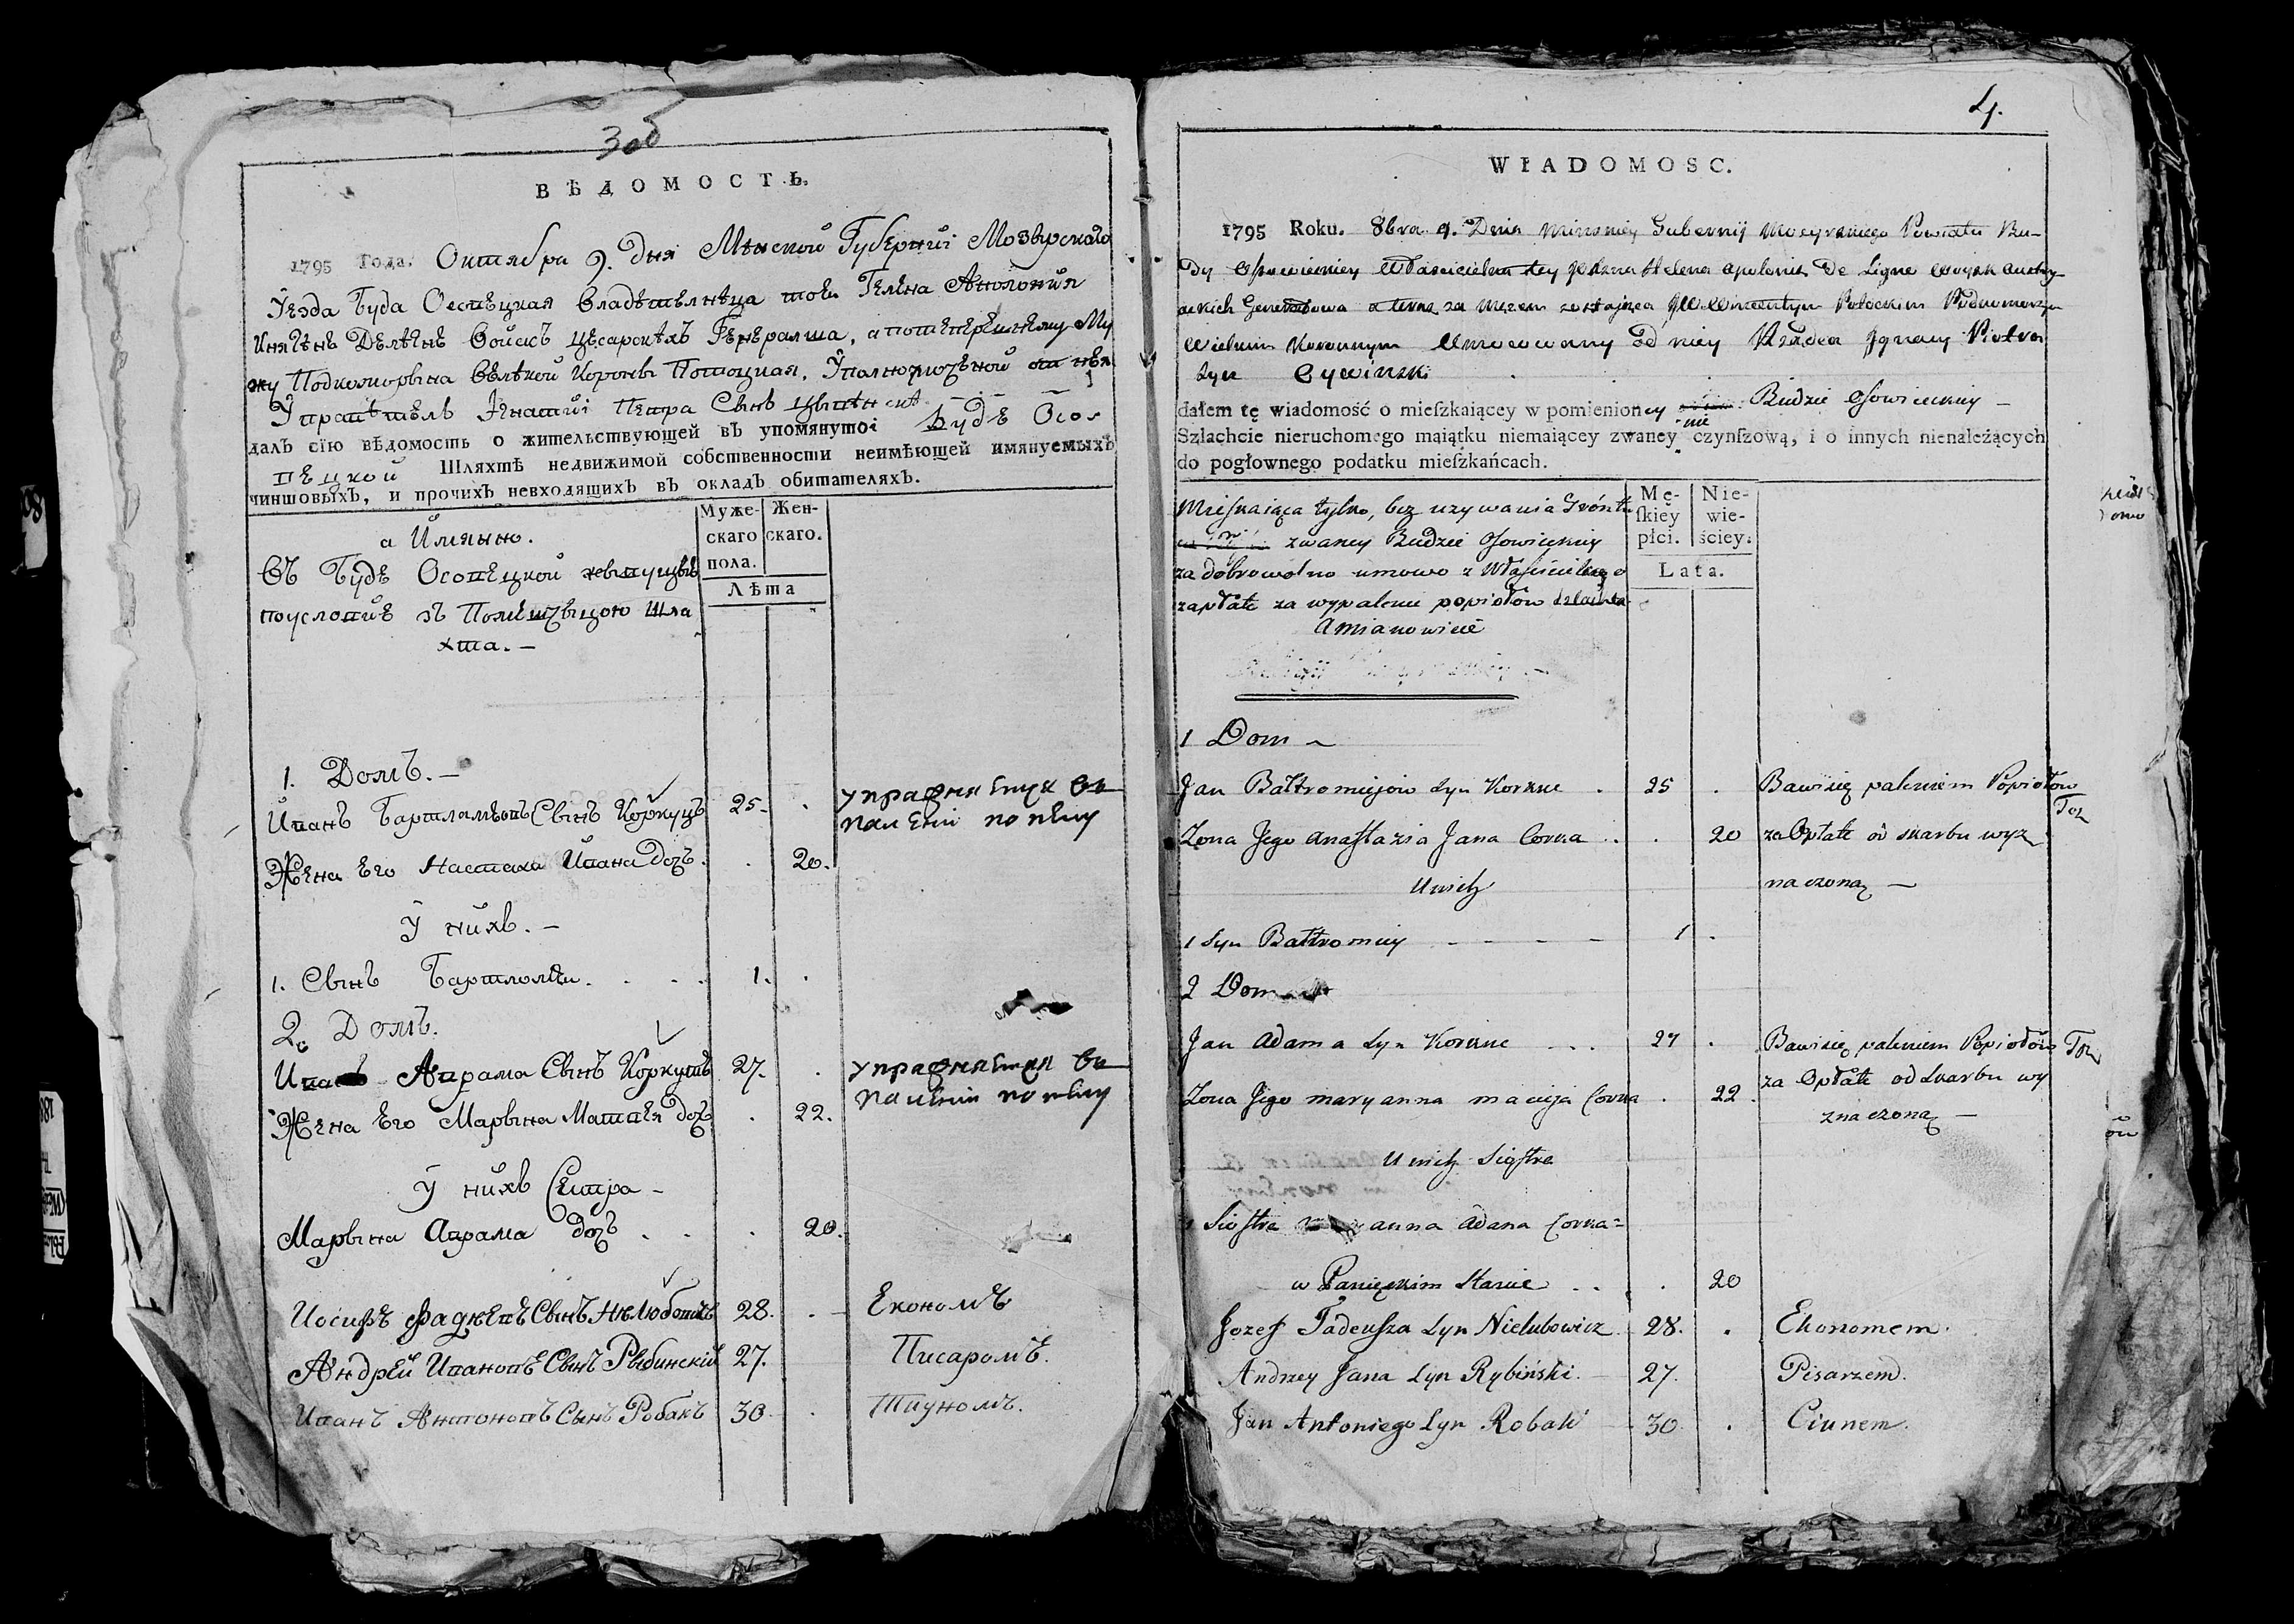 3об
ВѢДОМОСТЬ.
1795 Года. Октября 9. дня Минской Губерніі Мозырскаго
Уезда Буда Осовецкая владѣтелница тоей Гелена Аполонія
Войскъ цесарскихъ Генералша, а потеперешнему Му
жу Подкоморына Велѣкой Короны Потоцкая, Уполномоченой от нея
Управитель Игнатиі Петра Сынъ
далъ сію вѣдомость о жительствующей въ упомянутоі Будѣ Осо-
вецкой Шляхтѣ недвижимой собственности неимѣющей имянуемыхъ
чиншовыхъ, и прочихъ невходящихъ въ окладъ обитателяхъ.
а Имянно.
Въ Будѣ Осовецкой живущыя
поусловиѣ зъ Помещыцою Шля
хта. —
Мужескаго пола.
Женскаго.
Лѣта
1. Домъ. —
Иванъ Бартламѣевъ Сынъ Коркуцъ 25. . упражняется въ
палении попелу
Жена Его Настася Ивана дочь. . 20.
У нихъ. —
1. Сынъ Бартломѣй. . . . 1. .
2. Домъ.
Иванъ Адрама Сынъ Коркуцъ 27. . упражняется въ
палении попелу
Жена Его Марына Матвея дочь . 22.
У нихъ Сестра —
Марына Адрама дочь . . . 20.
Иосифъ Фадѣевъ Сынъ Нѣлюбовичъ 28. . Економъ
Андрей Ивановъ Сынъ Рыбинскій 27. Писаромъ.
Иванъ Антоновъ Сынъ Робакъ 30. . Тиуномъ.
4.
WIADOMOSC.
1795 Roku. 8bra 9. Dnia Minskiey Gubernij Mozyrskiego Powiatu Bu-
dy Osowieckiey Włascicielka tey JOXzna Helena Apolonia De Ligne woysk Austry-
ackich Generałowa a teraz za mężem zostająca JWWincentym Potockim Podkomorzym
Wielkim Koronnym Umocowany od niey Rządca Ignacy Piotra
Syn Cywiński
dałem tę wiadomość o mieſzkaiącey w pomienioney Budzie Osowieckiey —
Szlachcie nieruchomego maiątku niemaiącey zwaney nie czynſzową, i o innych nienależących
do pogłownego podatku mieſzkańcach.
Mieſzkaiąca tylko, bez uzywania Gróntu
w zwaney Budzie Osowieckiey
za dobrowolno umowo z Właścicielką o
zapłatę za wypalenie popiołów Szlachta
Amianowicie
Męſkiey płci.
Niewieściey.
Lata.
1 Dom
Jan Bałtromiejow Syn Korkuc . 25 . Bawi się paleniem Popiołów
Zona Jego Anastazia Jana Corka . . 20 za Opłatę od skarbu wyz
U nich naczoną —
1 Syn Bałtromiey - - - - 1 .
2 Dom
Jan Adama Syn Korkuc . . . 27 . Bawi się paleniem Popiołów
Zona Jego Maryanna Macieja Corka . 22 za Opłatę od Skarbu wy
znaczoną —
U nich Siostra
1 Siostra Maryanna Adama Corka =
w Panięskim Stanie . . . 20
Jozef Tadeusza Syn Nielubowicz 28. . Ekonomem.
Andrzey Jana Syn Rybiński. 27. Pisarzem.
Jan Antoniego Syn Robak 30 . Ciunem.